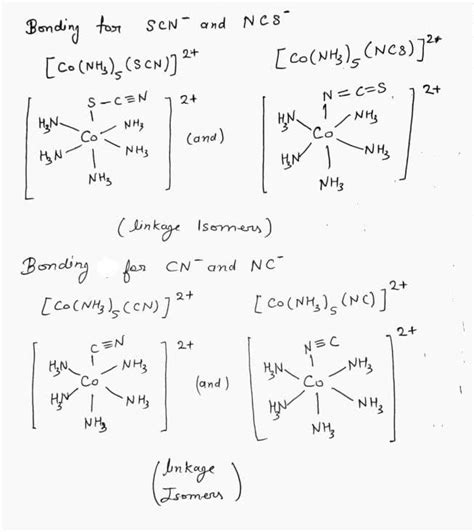 Bonding for SCN⁻ and NCS⁻
[Co(NH₃)₅(SCN)]²⁺ [Co(NH₃)₅(NCS)]²⁺
S-C≡N 2+ N=C=S 2+
H₃N NH₃ H₃N NH₃
Co (and) Co
H₃N NH₃ H₃N NH₃
NH₃ NH₃
(linkage Isomers)
Bonding for CN⁻ and NC⁻
[Co(NH₃)₅(CN)]²⁺ [Co(NH₃)₅(NC)]²⁺
C≡N 2+ N≡C 2+
H₃N NH₃ H₃N NH₃
Co (and) Co
H₃N NH₃ H₃N NH₃
NH₃ NH₃
(linkage
Isomers)